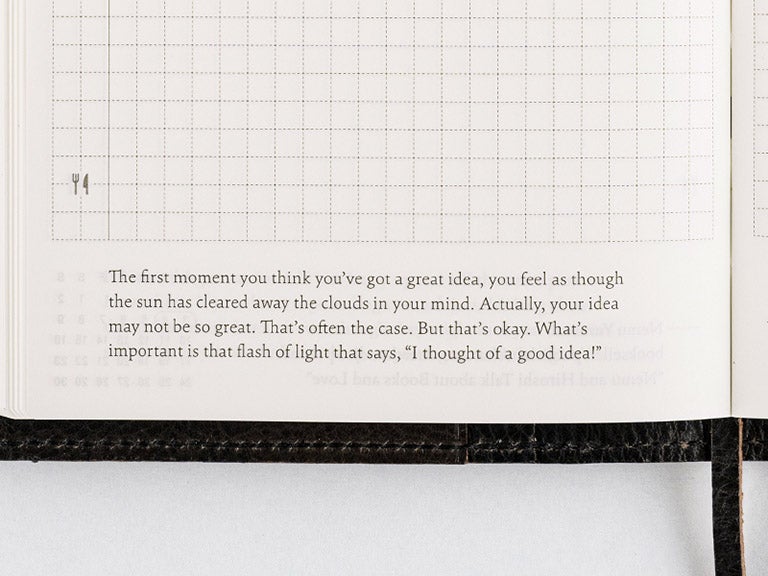 The first moment you think you’ve got a great idea, you feel as though
the sun has cleared away the clouds in your mind. Actually, your idea
may not be so great. That’s often the case. But that’s okay. What’s
important is that flash of light that says, “I thought of a good idea!”
"Nemu and Hiroshi Talk about Books and Love"